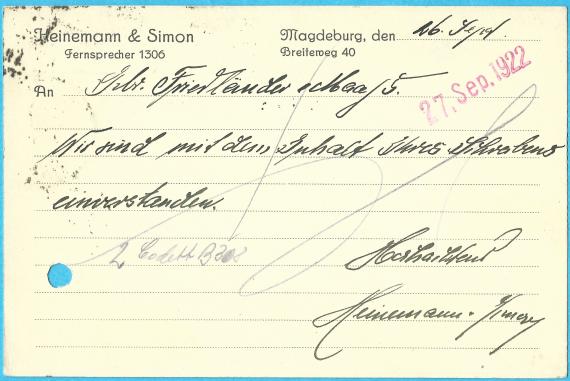 Heinemann & Simon
Fernsprecher 1306
Magdeburg, den 26. Sept
Breiteweg 40
27. Sep. 1922
An Gebr. Friedländer & Maaß.
Wir sind mit dem Inhalt Ihres Schreibens
einverstanden.
2
Hochachtend
Heinemann & Simon